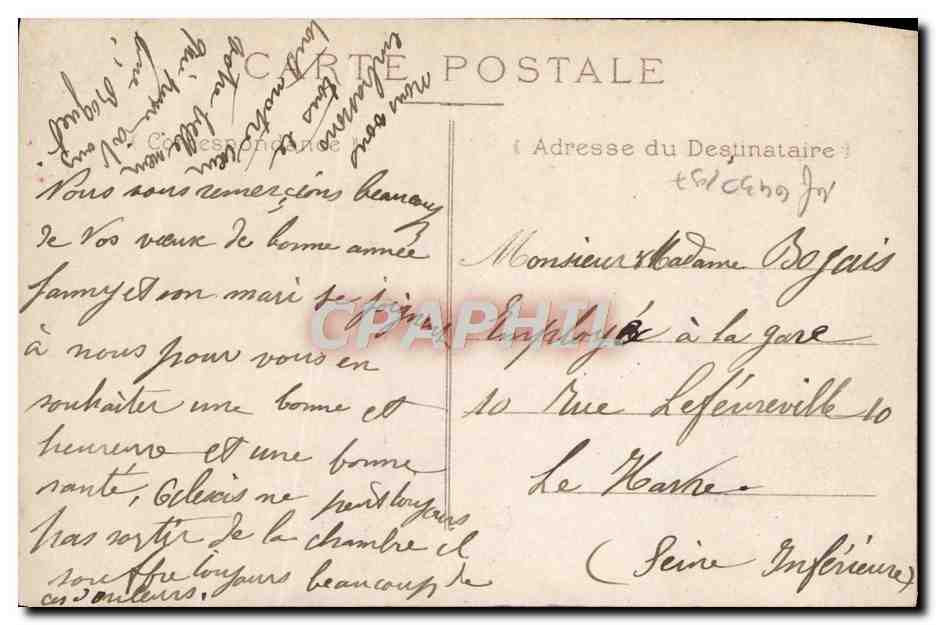 CARTE POSTALE
Correspondance
Adresse du Destinataire
Nous vous remerçions beaucoup
de vos vœux de bonne année
fanny et son mari se joignent
à nous pour vous en
souhaiter une bonne et
heureuse et une bonne
santé, Alexis ne peut toujours
pas sortir de la chambre il
souffre toujours beaucoup de
ces douleurs.
nous vous
embrassons
tous
tout notre
votre
qui
Monsieur & Madame Bojais
Employé à la gare
10 Rue Lefévreville 10
Le Havre.
(Seine Inférieure)
CPAPHIL